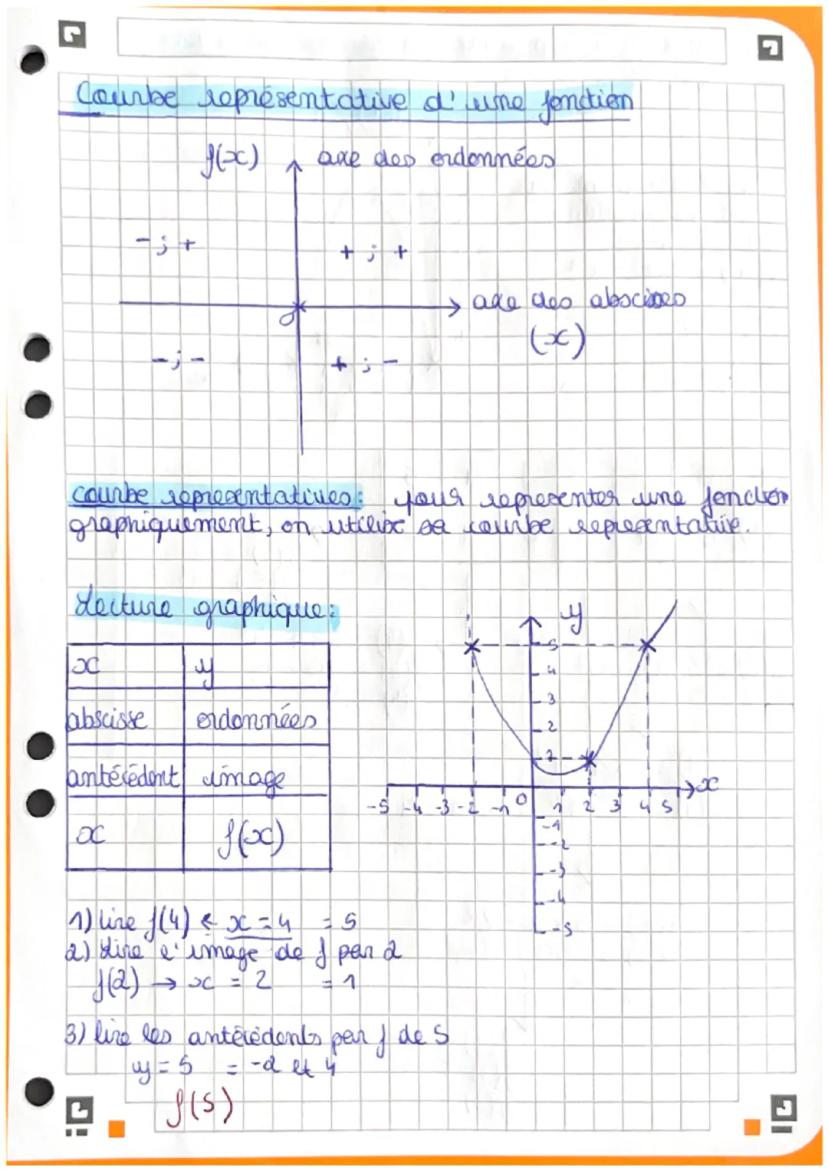 Courbe représentative d'une fonction
f(x) axe des ordonnées
- ; + + ; +
axe des abscisses
O
(x)
- ; - + ; -
courbe representatives : pour representer une fonction
graphiquement, on utilise sa courbe representative.
Lecture graphique :
x y
abscisse ordonnées
antécédent image
x f(x)
y
5
4
3
2
1
-5 -4 -3 -2 -1 0 1 2 3 4 5 x
-1
-2
-3
-4
-5
1) lire f(4) ← x = 4 = 5
2) Lire l'image de f par 2
f(2) → x = 2 = 1
3) lire les antécédents par f de 5
y = 5 = -2 et 4
f(5)